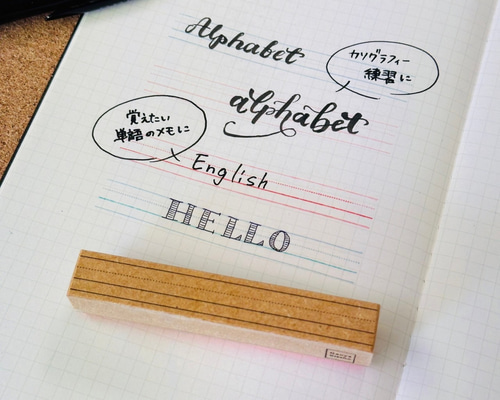 Alphabet
カリグラフィー
練習に
alphabet
覚えたい
単語のメモに
English
HELLO